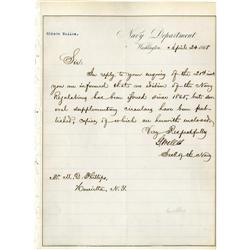 Navy Department
Washington, April 24
Sir:
In reply to your enquiry of the 21st inst
you are informed that no edition of the Navy
Regulations has been issued since 1865, but
several supplementary circulars have been pub-
lished, copies of which are herewith enclosed.
Very Respectfully
Secty of the Navy
Mr. M. D. Phillips,
Henrietta, N.Y.